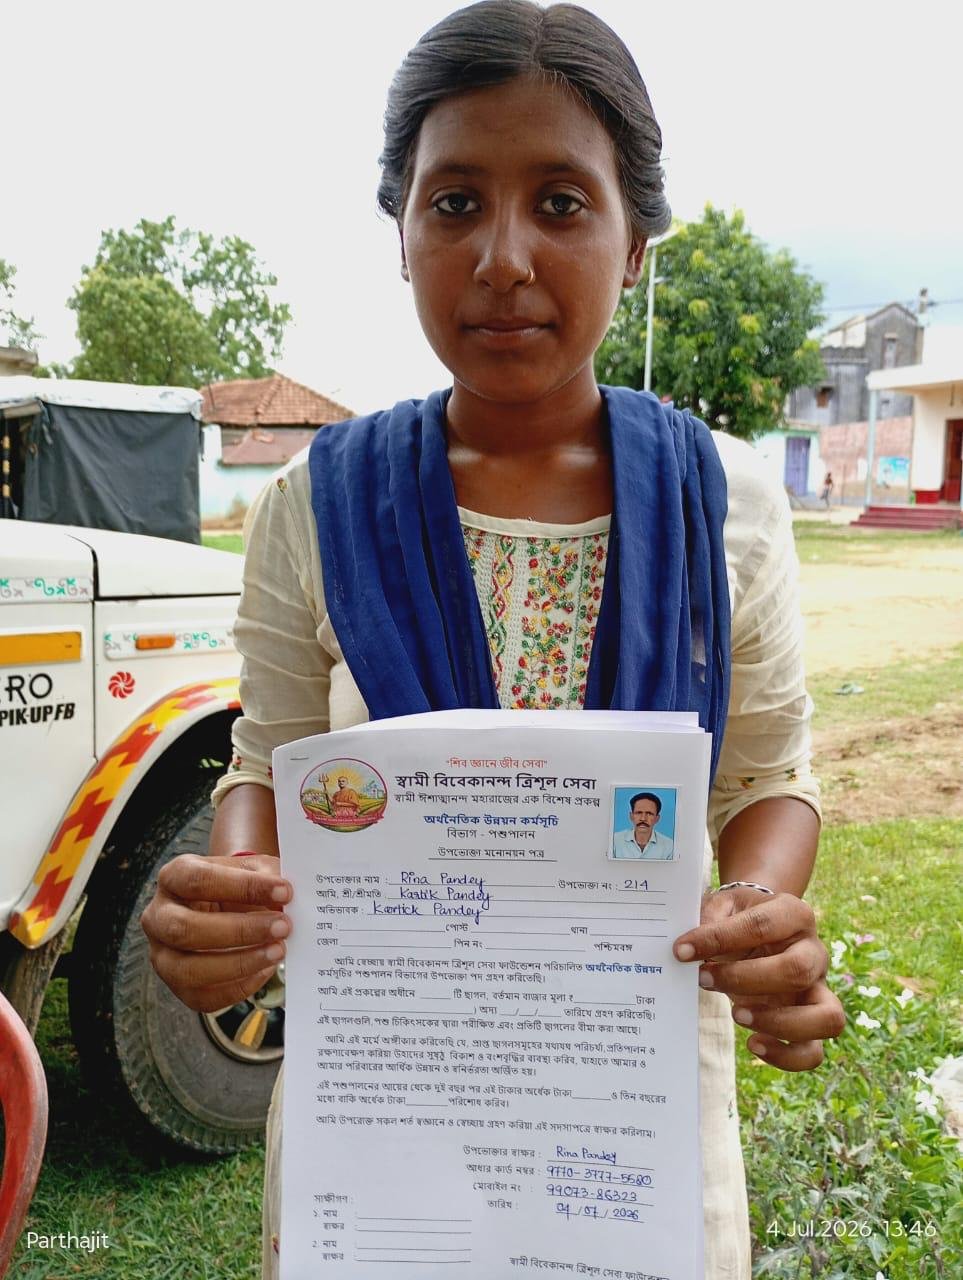 ERO
PIK-UP FB
"শিব জ্ঞানে জীব সেবা"
স্বামী বিবেকানন্দ ত্রিশূল সেবা
স্বামী ঈশাত্মানন্দ মহারাজের এক বিশেষ প্রকল্প
অর্থনৈতিক উন্নয়ন কর্মসূচি
বিভাগ - পশুপালন
উপভোক্তা মনোনয়ন পত্র
উপভোক্তার নাম : Rina Pandey উপভোক্তা নং : 214
আমি, শ্রী/শ্রীমতি : Kartik Pandey
অভিভাবক : Kartick Pandey
গ্রাম : পোস্ট থানা
জেলা পিন নং পশ্চিমবঙ্গ
আমি স্বেচ্ছায় স্বামী বিবেকানন্দ ত্রিশূল সেবা ফাউন্ডেশন পরিচালিত অর্থনৈতিক উন্নয়ন
কর্মসূচির পশুপালন বিভাগের উপভোক্তা পদ গ্রহণ করিতেছি।
আমি এই প্রকল্পের অধীনে টি ছাগল, বর্তমান বাজার মূল্য ₹ টাকা
( ) অদ্য / / তারিখে গ্রহণ করিতেছি।
এই ছাগলগুলি, পশু চিকিৎসকের দ্বারা পরীক্ষিত এবং প্রতিটি ছাগলের বীমা করা আছে।
আমি এই মর্মে অঙ্গীকার করিতেছি যে, প্রাপ্ত ছাগলসমূহের যথাযথ পরিচর্যা, প্রতিপালন ও
রক্ষণাবেক্ষণ করিয়া উহাদের সুষ্ঠু বিকাশ ও বংশবৃদ্ধির ব্যবস্থা করিব, যাহাতে আমার ও
আমার পরিবারের আর্থিক উন্নয়ন ও স্বনির্ভরতা অর্জিত হয়।
এই পশুপালনের আয়ের থেকে দুই বছর পর এই টাকার অর্ধেক টাকা ও তিন বছরের
মধ্যে বাকি অর্ধেক টাকা পরিশোধ করিব।
আমি উপরোক্ত সকল শর্ত স্বজ্ঞানে ও স্বেচ্ছায় গ্রহণ করিয়া এই সদস্যপত্রে স্বাক্ষর করিলাম।
উপভোক্তার স্বাক্ষর : Rina Pandey
আধার কার্ড নম্বর : 9770-3777-5580
মোবাইল নং : 99073-86323
তারিখ : 04/07/2026
সাক্ষীগণ :
১. নাম :
স্বাক্ষর :
2. নাম :
স্বাক্ষর :
স্বামী বিবেকানন্দ ত্রিশূল সেবা ফাউন্ডেশন
Parthajit
4 Jul 2026, 13:46